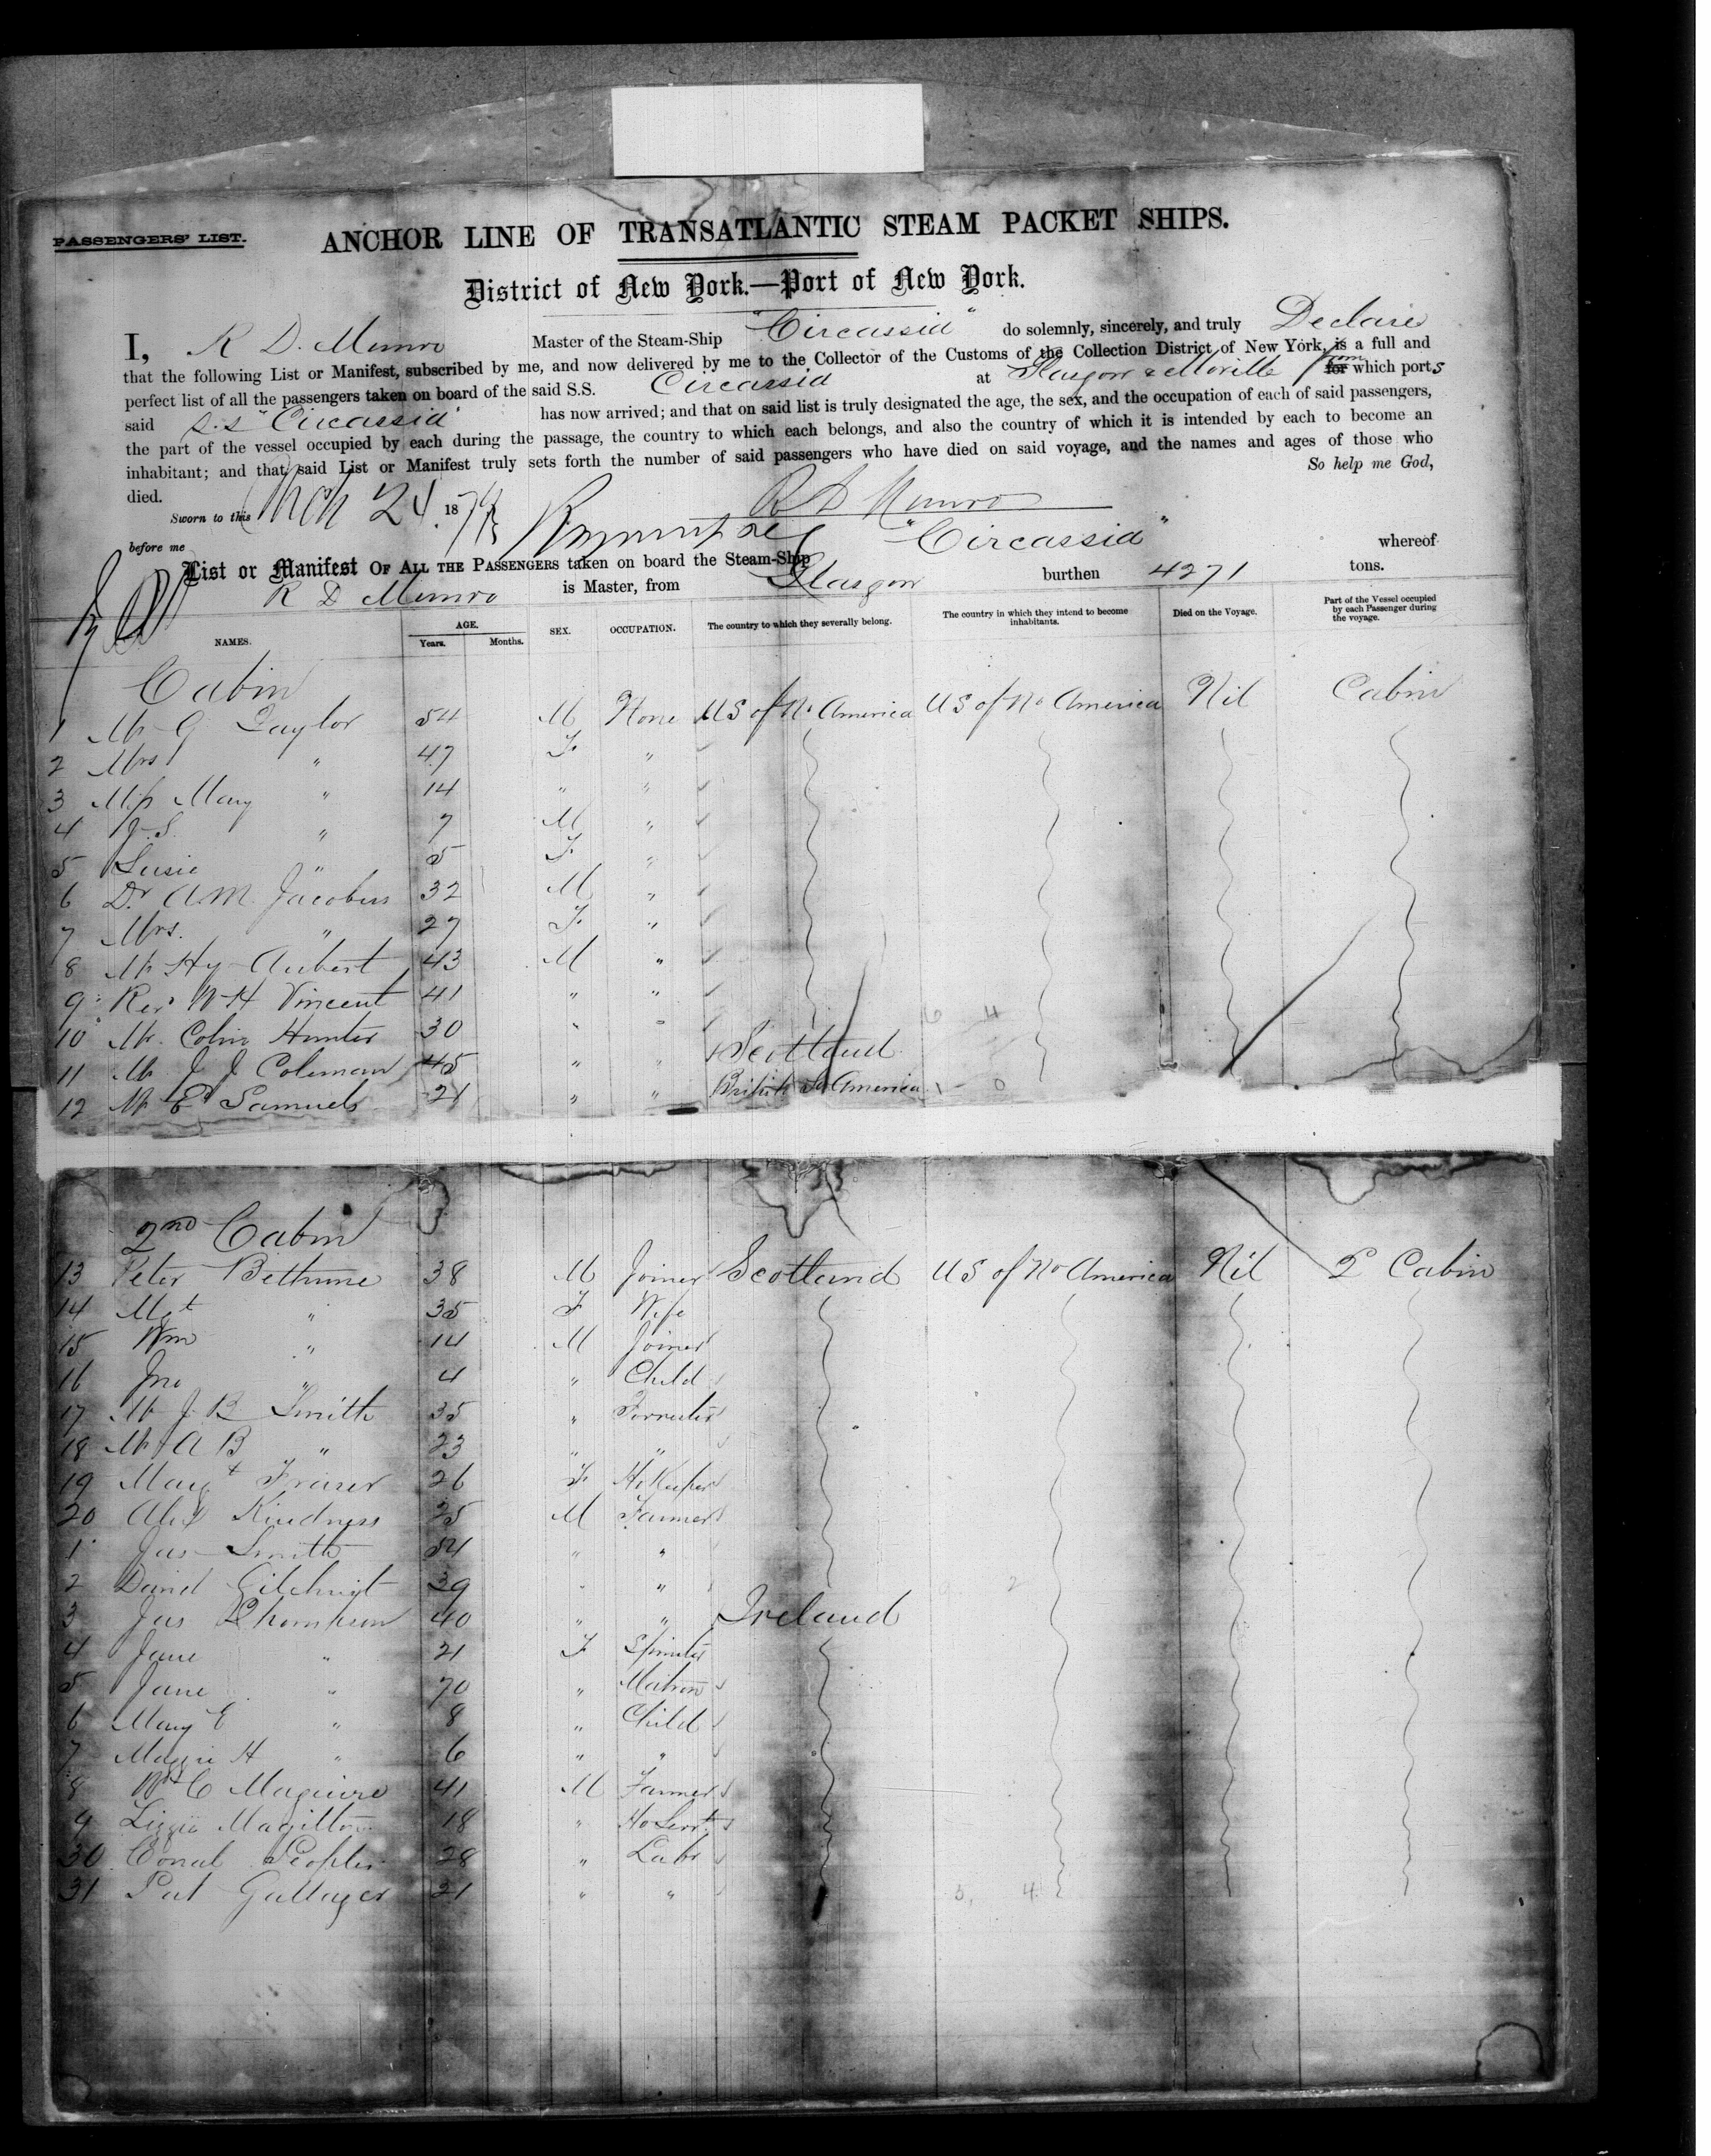 PASSENGERS' LIST.
ANCHOR LINE OF TRANSATLANTIC STEAM PACKET SHIPS.
District of New York.—Port of New York.
I, R D. Munro Master of the Steam-Ship "Circassia" do solemnly, sincerely, and truly Declare
that the following List or Manifest, subscribed by me, and now delivered by me to the Collector of the Customs of the Collection District of New York, is a full and
perfect list of all the passengers taken on board of the said S.S. Circassia at Glasgow & Moville from for which ports
said S.S "Circassia" has now arrived; and that on said list is truly designated the age, the sex, and the occupation of each of said passengers,
the part of the vessel occupied by each during the passage, the country to which each belongs, and also the country of which it is intended by each to become an
inhabitant; and that said List or Manifest truly sets forth the number of said passengers who have died on said voyage, and the names and ages of those who
died. So help me God,
Sworn to this Mch 24 1879 R D Munro
before me
List or Manifest OF ALL THE PASSENGERS taken on board the Steam-Ship "Circassia" whereof
R D Munro is Master, from Glasgow burthen 4271 tons.
NAMES. AGE. Years. Months. SEX. OCCUPATION. The country to which they severally belong. The country in which they intend to become inhabitants. Died on the Voyage. Part of the Vessel occupied by each Passenger during the voyage.
Cabin
1 Mr G Taylor 54 M None US of No America US of No America Nil Cabin
2 Mrs " 47 F "
3 Miss Mary " 14 " "
4 J. S. " 7 M "
5 Susie " 5 F "
6 Dr A.M. Jacobus 32 M "
7 Mrs. " 27 F "
8 Mr Hy Aubert 43 M "
9 Rev W H Vincent 41 " "
10 Mr. Colin Hunter 30 " "
11 Mr J J Coleman 45 " " Scotland
12 Mr E Samuels 21 " " British So America
2nd Cabin
13 Peter Bethune 38 M Joiner Scotland US of No America Nil 2 Cabin
14 Mgt " 35 F Wife
15 Wm " 14 M Joiner
16 Jno " 4 " Child
17 Mr J. B Smith 35 "
18 Mr A B " 23 " "
19 Margt Fraser 26 F H Keeper
20 Alex Kindness 25 M Farmer
1 Jas Smith 54 " "
2 David Gilchrist 39 " "
3 Jas Thompson 40 " " Ireland
4 Jane " 21 F Spinster
5 Jane " 70 " Matron
6 Mary E " 8 " Child
7 Maggie H " 6 " "
8 Wm C Maguire 41 M Farmer
9 Lizzie Magilton 18 " Ho Servt
30 Conal Peoples 28 " Labr
31 Pat Gallager 21 " "